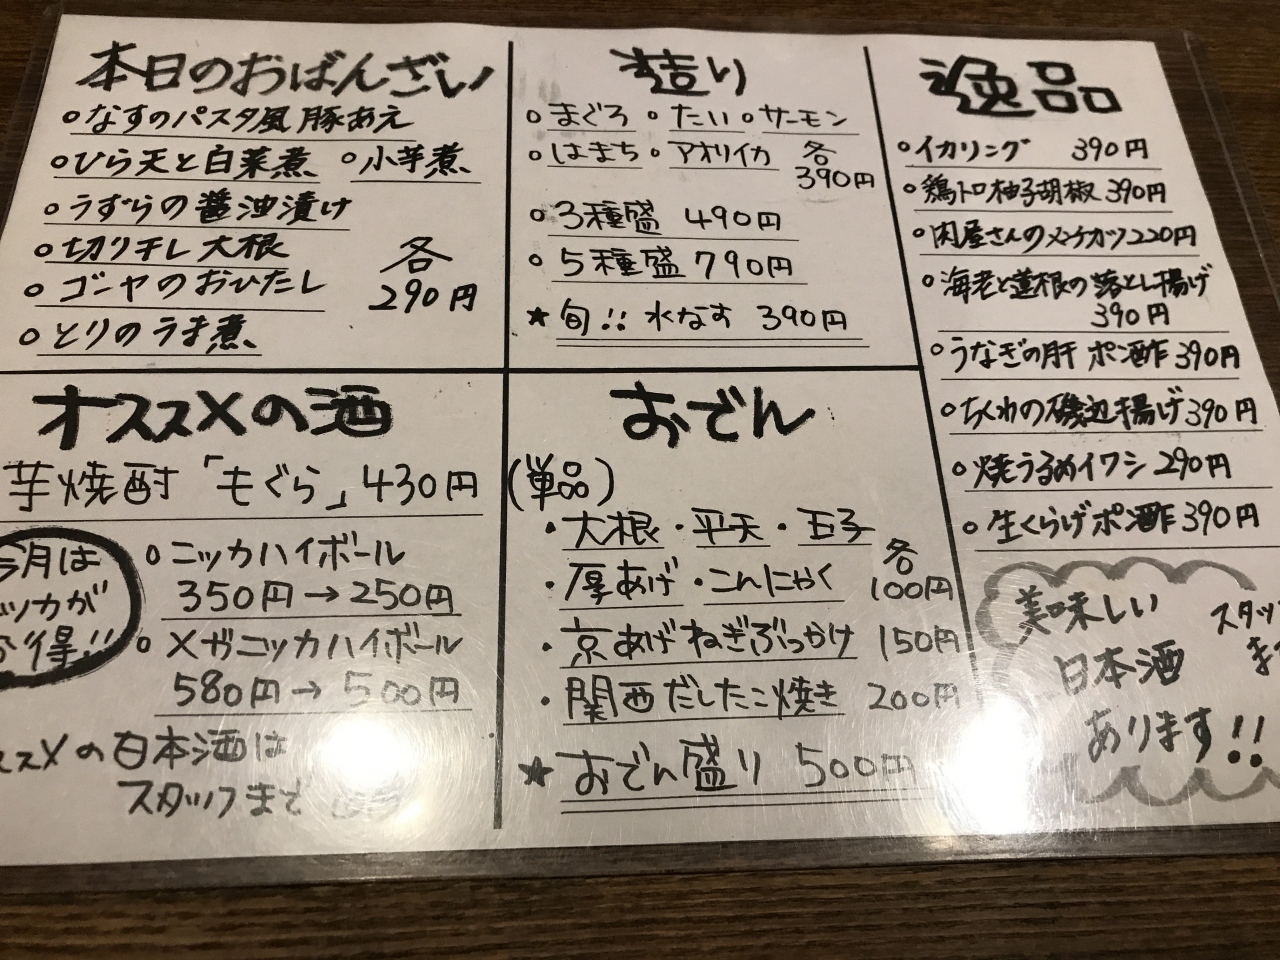 本日のおばんざい
○なすのパスタ風豚あえ
○ひら天と白菜煮 ○小芋煮
○うずらの醤油漬け
○切り干し大根
○ゴーヤのおひたし
○とりのうま煮
各
290円
造り
○まぐろ ○たい ○サーモン
○はまち ○アオリイカ 各
390円
○3種盛 490円
○5種盛 790円
★旬!! 水なす 390円
逸品
○イカリング 390円
○鶏トロ柚子胡椒 390円
○肉屋さんのメンチカツ 220円
○海老と蓮根の落とし揚げ
390円
○うなぎの肝 ポン酢 390円
○ちくわの磯辺揚げ 390円
○焼うるめイワシ 290円
○生くらげポン酢 390円
美味しい
日本酒
あります!!
スタッフ
まで
オススメの酒
芋焼酎「もぐら」430円
今月は
ニッカが
お得!!
○ニッカハイボール
350円→250円
○メガニッカハイボール
580円→500円
オススメの日本酒は
スタッフまで
おでん
(単品)
・大根・平天・玉子
・厚あげ・こんにゃく
各
100円
・京あげねぎぶっかけ 150円
・関西だしたこ焼き 200円
★おでん盛り 500円